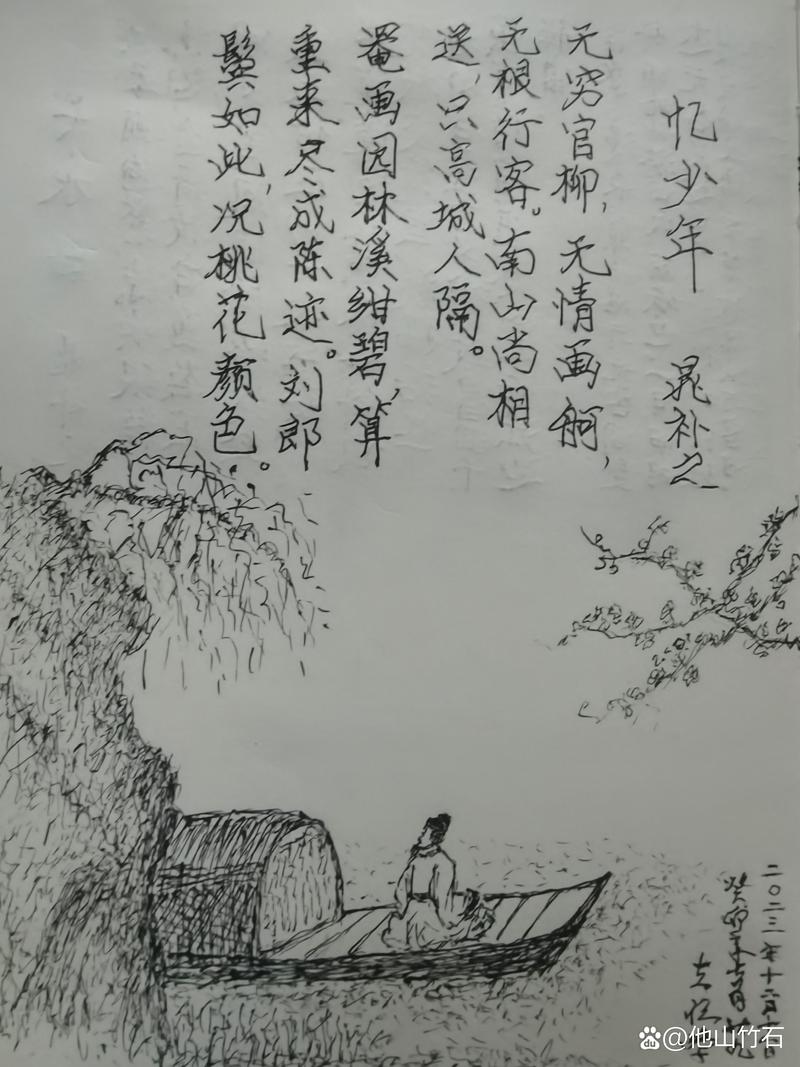 忆少年 晁补之
无穷官柳，无情画舸，
无根行客。南山尚相
送，只高城人隔。
罨画园林溪绀碧，算
重来尽成陈迹。刘郎
鬓如此，况桃花颜色。
二〇二三年十二月
癸卯年
@他山竹石